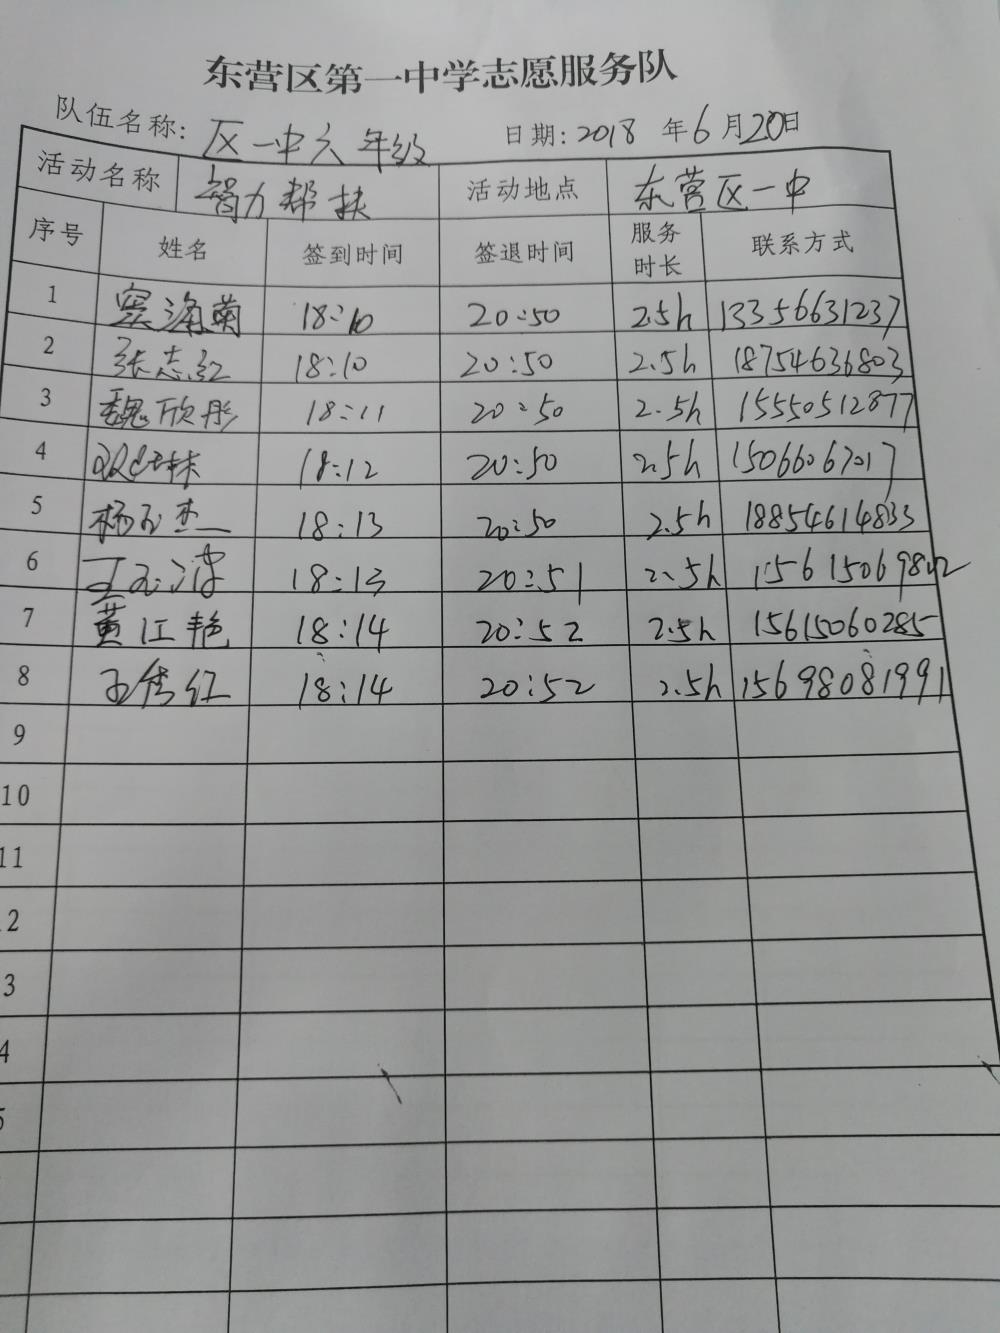 东营区第一中学志愿服务队
队伍名称: 区一中六年级 日期: 2018 年 6 月 20 日
活动名称 智力帮扶 活动地点 东营区一中
序号 姓名 签到时间 签退时间 服务时长 联系方式
1 窦海菊 18:10 20:50 2.5h 13356631237
2 张志红 18:10 20:50 2.5h 18754636803
3 魏欣彤 18:11 20:50 2.5h 15550512877
4 18:12 20:50 2.5h 15066067017
5 杨玉杰 18:13 20:50 2.5h 18854614833
6 王玉波 18:13 20:51 2.5h
7 黄江艳 18:14 20:52 2.5h 15615060285
8 王秀红 18:14 20:52 2.5h 15698081991
9
10
11
12
13
14
15